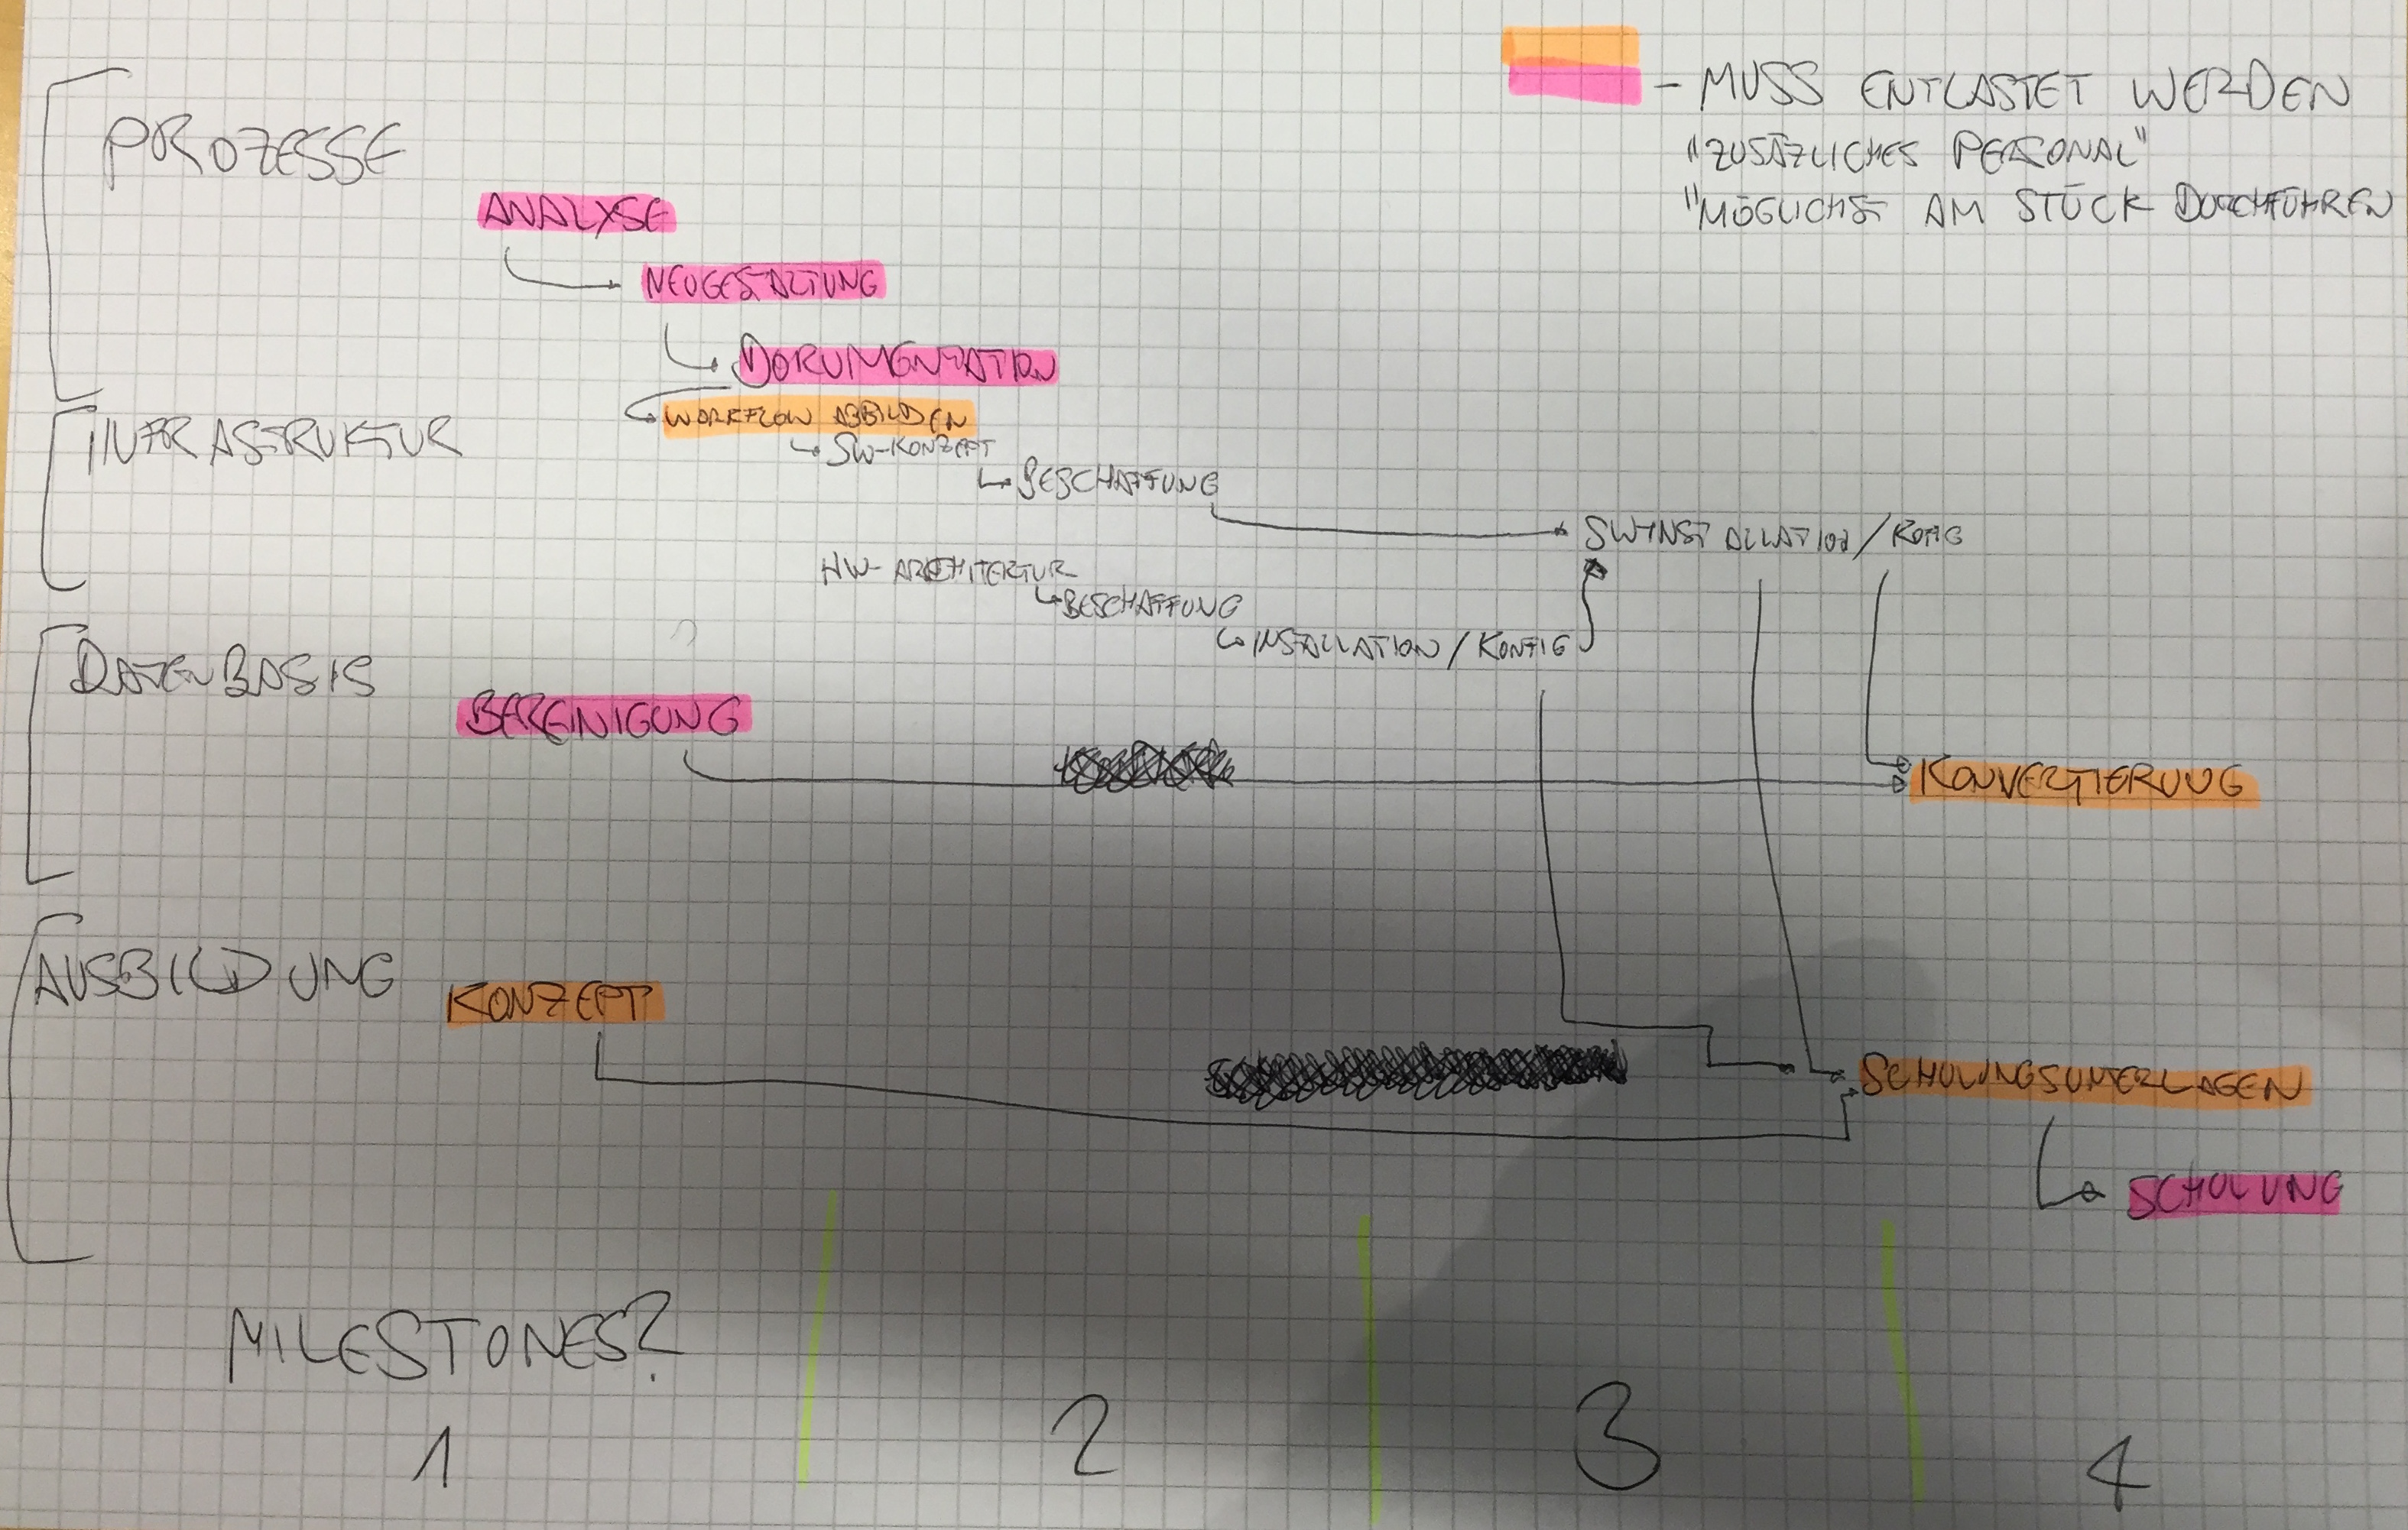 - MUSS ENTLASTET WERDEN
"ZUSÄZLICHES PERSONAL"
"MÖGLICHST AM STÜCK DURCHFÜHREN
PROZESSE
ANALYSE
NEUGESTALTUNG
DOKUMENTATION
INFRASTRUKTUR
WORKFLOW ABBILDEN
SW-KONZEPT
BESCHAFFUNG
SW INSTALLATION / KOFIG
HW-ARCHITEKTUR
BESCHAFFUNG
INSTALLATION / KONFIG
DATENBASIS
BEREINIGUNG
KONVERTIERUNG
AUSBILDUNG
KONZEPT
SCHULUNGSUNTERLAGEN
SCHULUNG
MILESTONES?
1 2 3 4